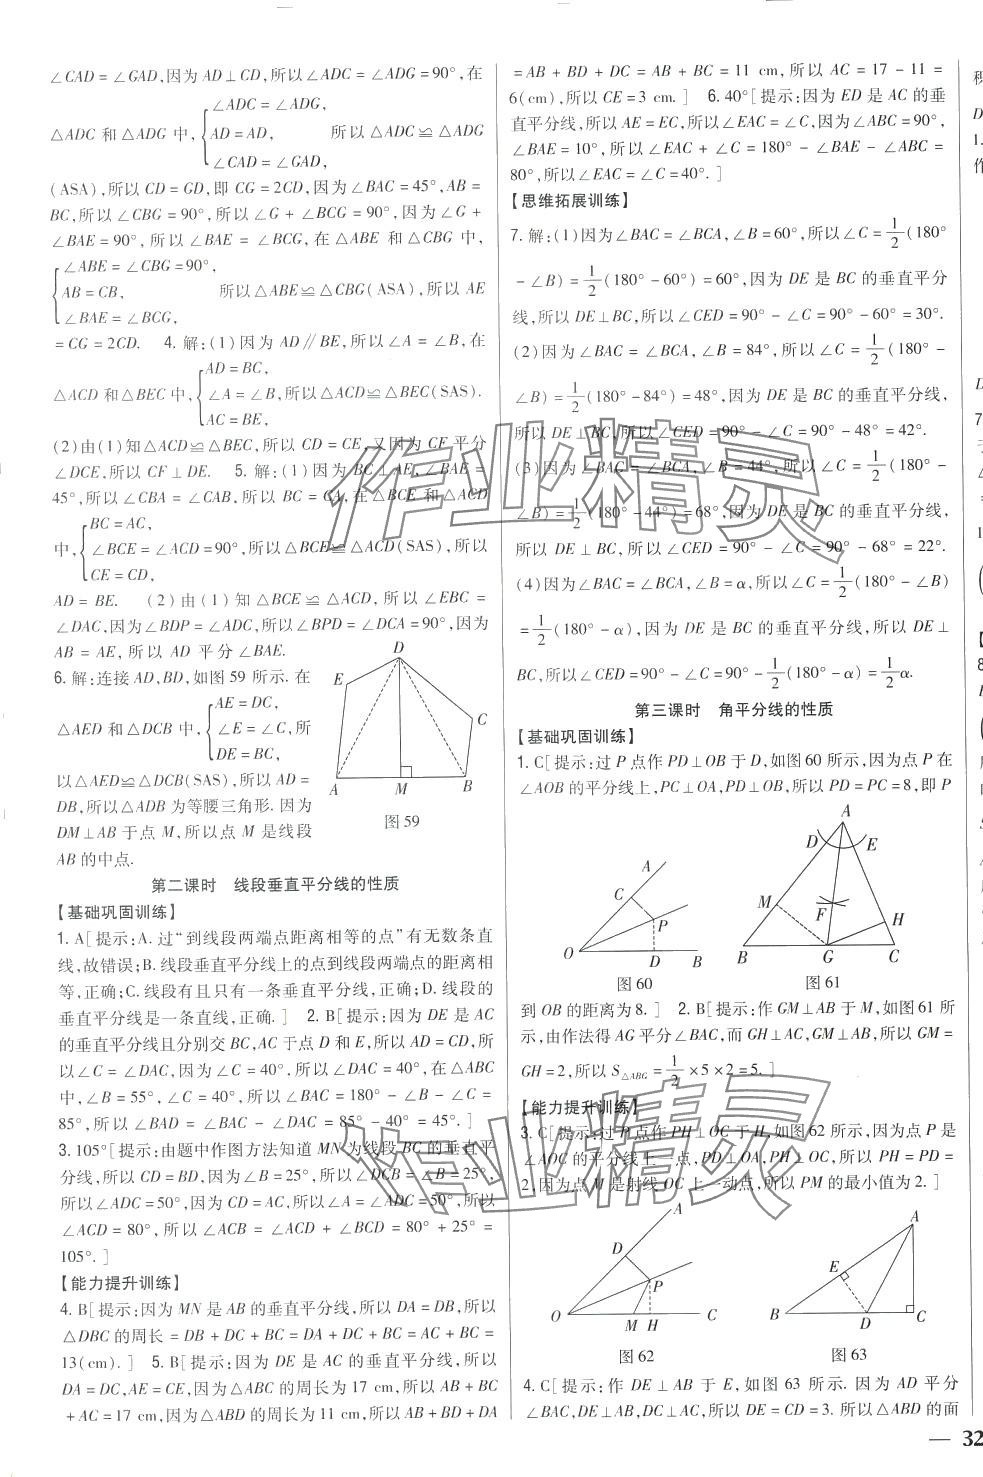 ∠CAD=∠GAD,因为 AD⊥CD,所以∠ADC=∠ADG=90°,在
△ADC 和△ADG 中,{∠ADC=∠ADG, AD=AD, ∠CAD=∠GAD, 所以△ADC≌△ADG
(ASA),所以 CD=GD,即 CG=2CD,因为∠BAC=45°,AB=
BC,所以∠CBG=90°,所以∠G+∠BCG=90°,因为∠G+
∠BAE=90°,所以∠BAE=∠BCG,在△ABE 和△CBG 中,
{∠ABE=∠CBG=90°, AB=CB, ∠BAE=∠BCG, 所以△ABE≌△CBG(ASA),所以 AE
=CG=2CD. 4.解:(1)因为 AD∥BE,所以∠A=∠B,在
△ACD 和△BEC 中,{AD=BC, ∠A=∠B, AC=BE, 所以△ACD≌△BEC(SAS).
(2)由(1)知△ACD≌△BEC,所以 CD=CE,又因为 CF 平分
∠DCE,所以 CF⊥DE. 5.解:(1)因为 BC⊥AE,∠BAE=
45°,所以∠CBA=∠CAB,所以 BC=CA,在△BCE 和△ACD
中,{BC=AC, ∠BCE=∠ACD=90°, CE=CD, 所以△BCE≌△ACD(SAS),所以
AD=BE. (2)由(1)知△BCE≌△ACD,所以∠EBC=
∠DAC,因为∠BDP=∠ADC,所以∠BPD=∠DCA=90°,因为
AB=AE,所以 AD 平分∠BAE.
6.解:连接 AD,BD,如图 59 所示.在
△AED 和△DCB 中,{AE=DC, ∠E=∠C, DE=BC, 所
以△AED≌△DCB(SAS),所以 AD=
DB,所以△ADB 为等腰三角形.因为
DM⊥AB 于点 M,所以点 M 是线段
AB 的中点.
D
E
C
A
M
B
图 59
第二课时 线段垂直平分线的性质
【基础巩固训练】
1. A[提示:A.过“到线段两端点距离相等的点”有无数条直
线,故错误;B.线段垂直平分线上的点到线段两端点的距离相
等,正确;C.线段有且只有一条垂直平分线,正确;D.线段的
垂直平分线是一条直线,正确.] 2. B[提示:因为 DE 是 AC
的垂直平分线且分别交 BC,AC 于点 D 和 E,所以 AD=CD,所
以∠C=∠DAC,因为∠C=40°,所以∠DAC=40°,在△ABC
中,∠B=55°,∠C=40°,所以∠BAC=180°-∠B-∠C=
85°,所以∠BAD=∠BAC-∠DAC=85°-40°=45°.]
3. 105°[提示:由题中作图方法知道 MN 为线段 BC 的垂直平
分线,所以 CD=BD,因为∠B=25°,所以∠DCB=∠B=25°,
所以∠ADC=50°,因为 CD=AC,所以∠A=∠ADC=50°,所以
∠ACD=80°,所以∠ACB=∠ACD+∠BCD=80°+25°=
105°.]
【能力提升训练】
4. B[提示:因为 MN 是 AB 的垂直平分线,所以 DA=DB,所以
△DBC 的周长=DB+DC+BC=DA+DC+BC=AC+BC=
13(cm).] 5. B[提示:因为 DE 是 AC 的垂直平分线,所以
DA=DC,AE=CE,因为△ABC 的周长为 17 cm,所以 AB+BC
+AC=17 cm,因为△ABD 的周长为 11 cm,所以 AB+BD+DA
=AB+BD+DC=AB+BC=11 cm,所以 AC=17-11=
6(cm),所以 CE=3 cm.] 6. 40°[提示:因为 ED 是 AC 的垂
直平分线,所以 AE=EC,所以∠EAC=∠C,因为∠ABC=90°,
∠BAE=10°,所以∠EAC+∠C=180°-∠BAE-∠ABC=
80°,所以∠EAC=∠C=40°.]
【思维拓展训练】
7.解:(1)因为∠BAC=∠BCA,∠B=60°,所以∠C=1/2(180°
-∠B)=1/2(180°-60°)=60°,因为 DE 是 BC 的垂直平分
线,所以 DE⊥BC,所以∠CED=90°-∠C=90°-60°=30°.
(2)因为∠BAC=∠BCA,∠B=84°,所以∠C=1/2(180°-
∠B)=1/2(180°-84°)=48°,因为 DE 是 BC 的垂直平分线,
所以 DE⊥BC,所以∠CED=90°-∠C=90°-48°=42°.
(3)因为∠BAC=∠BCA,∠B=44°,所以∠C=1/2(180°-
∠B)=1/2(180°-44°)=68°,因为 DE 是 BC 的垂直平分线,
所以 DE⊥BC,所以∠CED=90°-∠C=90°-68°=22°.
(4)因为∠BAC=∠BCA,∠B=α,所以∠C=1/2(180°-∠B)
=1/2(180°-α),因为 DE 是 BC 的垂直平分线,所以 DE⊥
BC,所以∠CED=90°-∠C=90°-1/2(180°-α)=1/2α.
第三课时 角平分线的性质
【基础巩固训练】
1. C[提示:过 P 点作 PD⊥OB 于 D,如图 60 所示,因为点 P 在
∠AOB 的平分线上,PC⊥OA,PD⊥OB,所以 PD=PC=8,即 P
A
C
P
O
D
B
图 60
A
D
E
M
F
H
B
G
C
图 61
到 OB 的距离为 8.] 2. B[提示:作 GM⊥AB 于 M,如图 61 所
示,由作法得 AG 平分∠BAC,而 GH⊥AC,GM⊥AB,所以 GM=
GH=2,所以 S△ABG=1/2×5×2=5.]
【能力提升训练】
3. C[提示:过 P 点作 PH⊥OC 于 H,如图 62 所示,因为点 P 是
∠AOC 的平分线上一点,PD⊥OA,PH⊥OC,所以 PH=PD=
2,因为点 M 是射线 OC 上一动点,所以 PM 的最小值为 2.]
A
D
P
O
M
H
C
图 62
A
E
B
D
C
图 63
4. C[提示:作 DE⊥AB 于 E,如图 63 所示.因为 AD 平分
∠BAC,DE⊥AB,DC⊥AC,所以 DE=CD=3.所以△ABD 的面
— 32
作业精灵
作业精灵